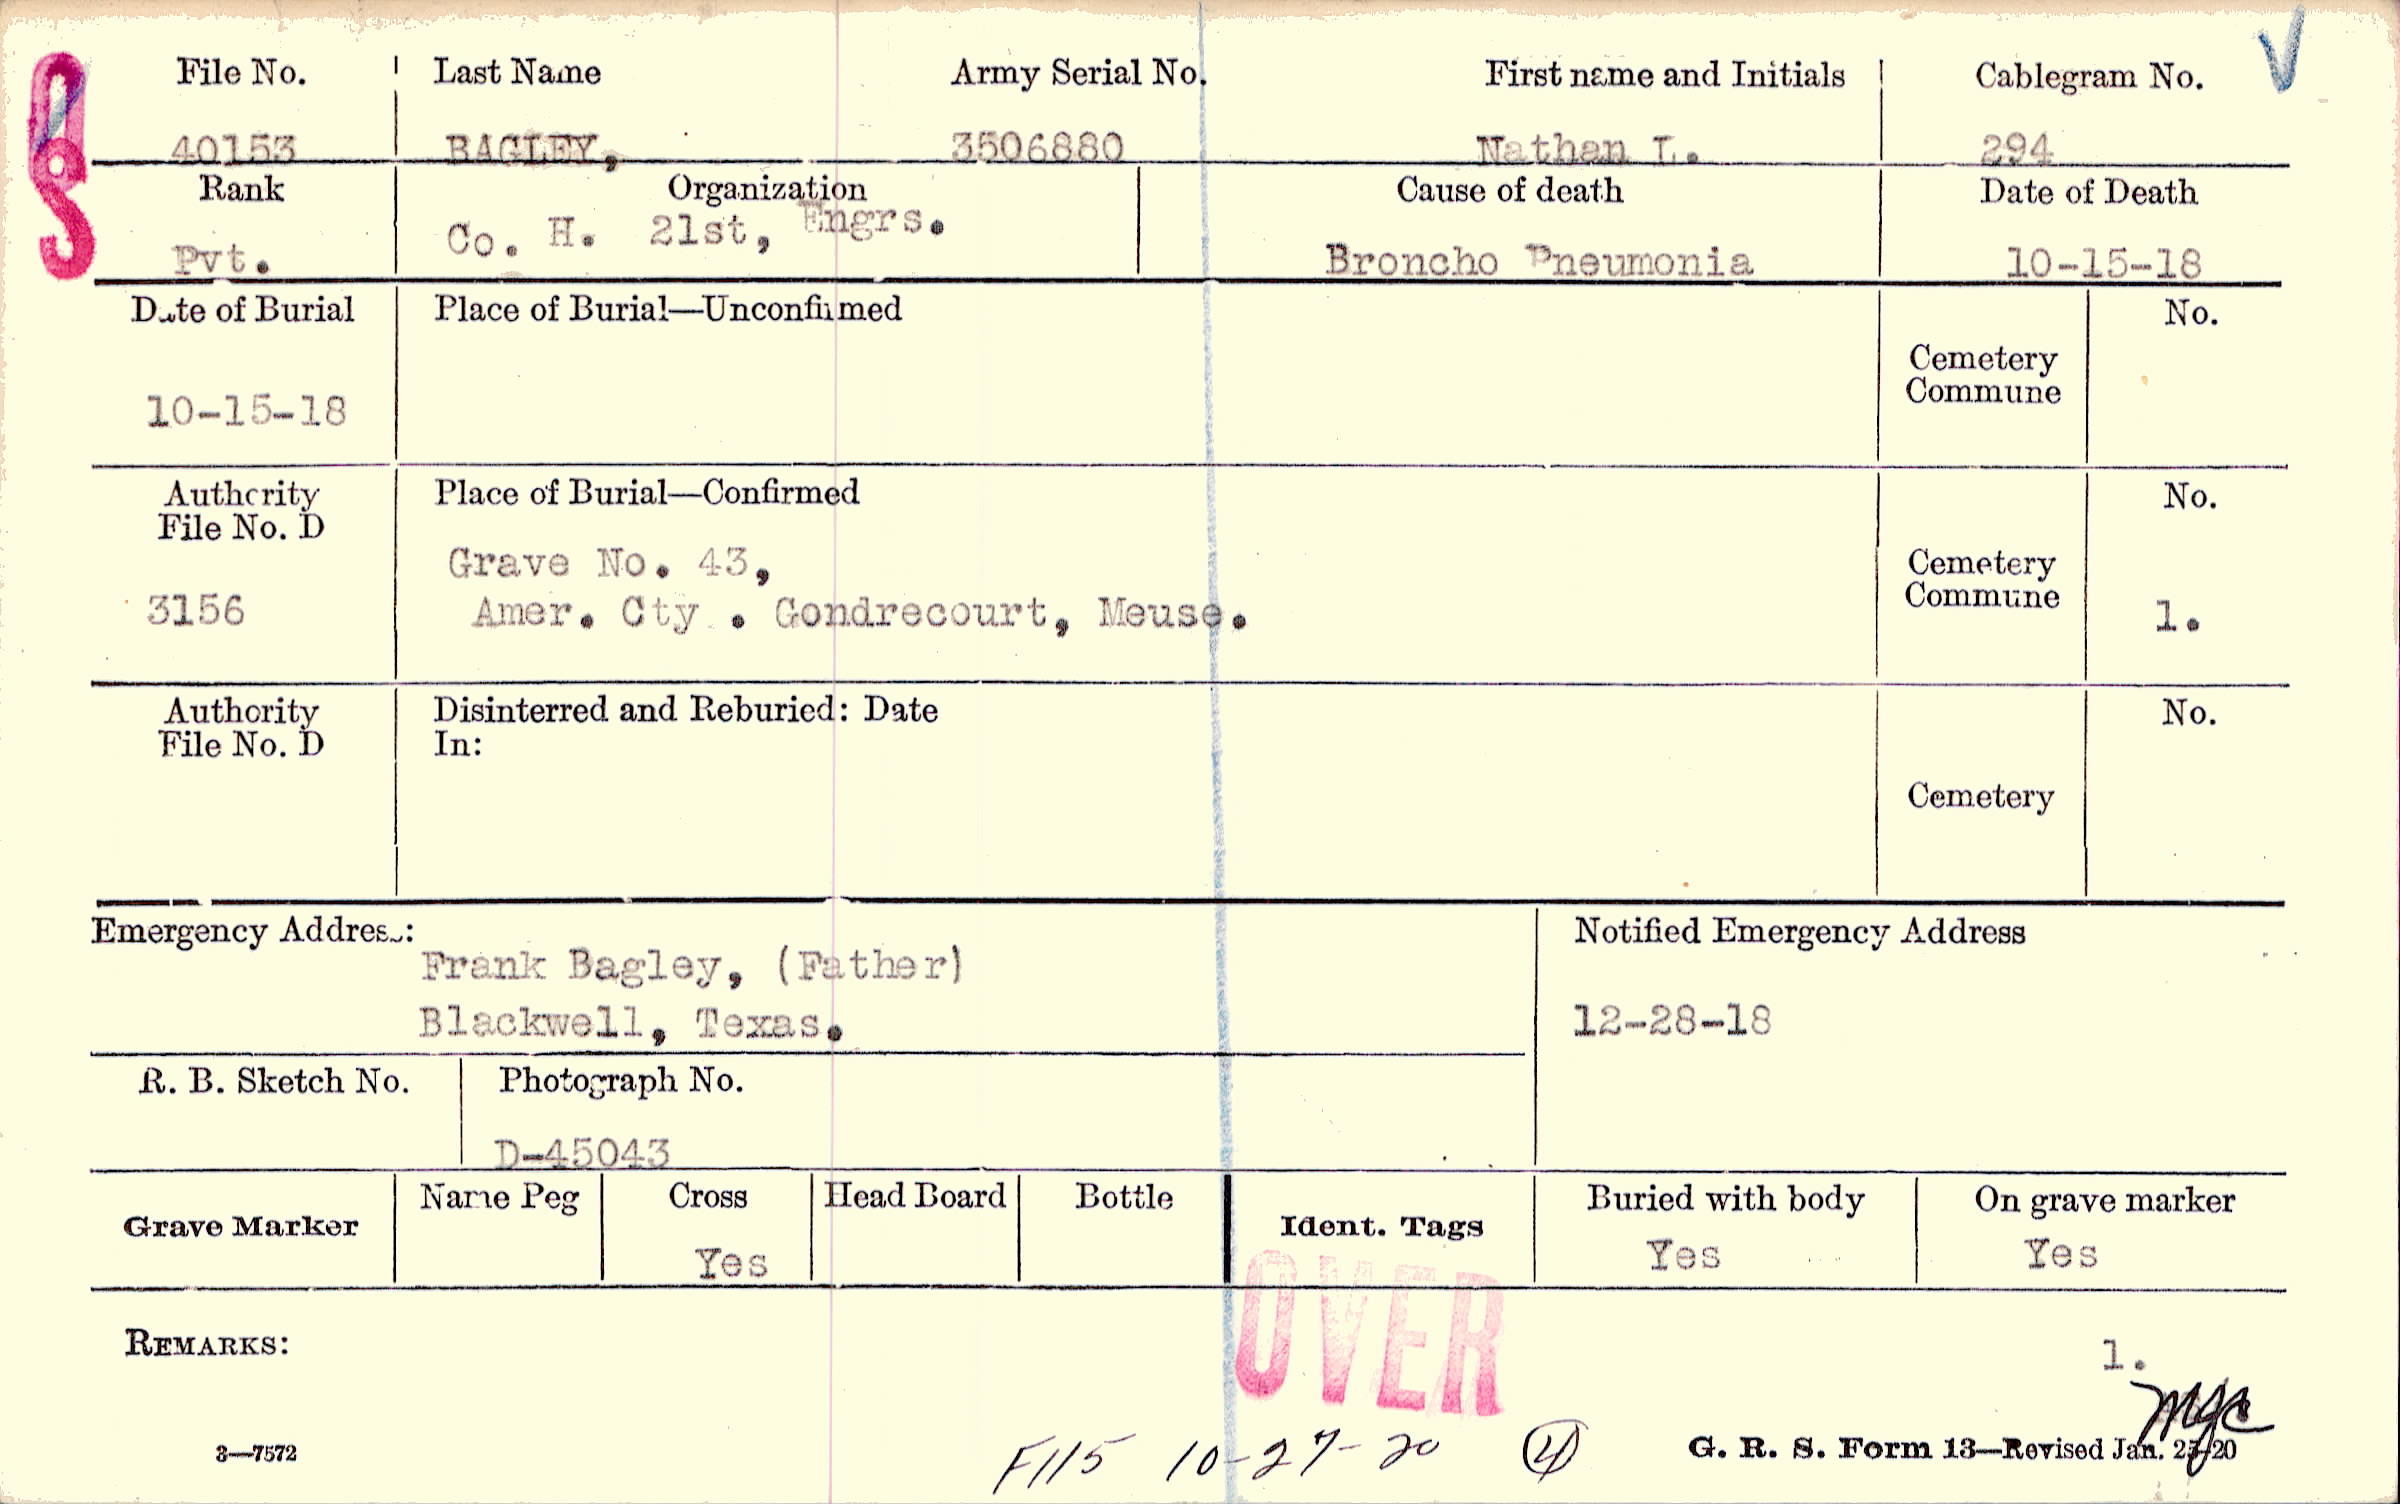 File No. Last Name Army Serial No. First name and Initials Cablegram No.
40153 BAGLEY, 3506880 Nathan L. 294
Rank Organization Cause of death Date of Death
Pvt. Co. H. 21st, Engrs. Broncho Pneumonia 10-15-18
Date of Burial Place of Burial—Unconfirmed No.
Cemetery
Commune
10-15-18
Authority Place of Burial—Confirmed No.
File No. D
Grave No. 43, Cemetery
3156 Amer. Cty . Gondrecourt, Meuse. Commune 1.
Authority Disinterred and Reburied: Date No.
File No. D In:
Cemetery
Emergency Address: Notified Emergency Address
Frank Bagley, (Father)
Blackwell, Texas. 12-28-18
R. B. Sketch No. Photograph No.
D-45043
Grave Marker Name Peg Cross Head Board Bottle Ident. Tags Buried with body On grave marker
Yes Yes Yes
OVER
REMARKS: 1.
3—7572 F115 10-27-20 4 G. R. S. Form 13—Revised Jan. 20